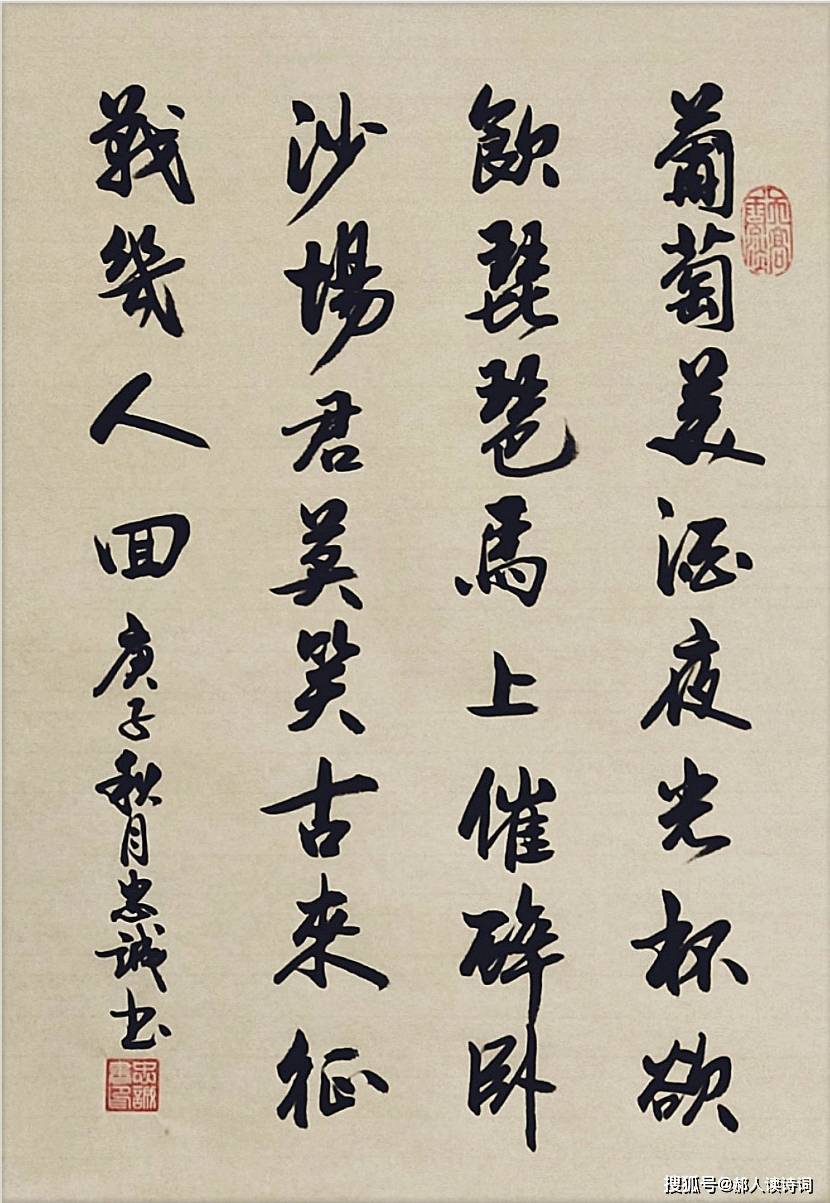 葡萄美酒夜光杯欲
飲琵琶馬上催碎卧
沙場君莫笑古來征
戰幾人回
庚子秋月忠誠书
忠誠書印
搜狐号@郝人读诗词